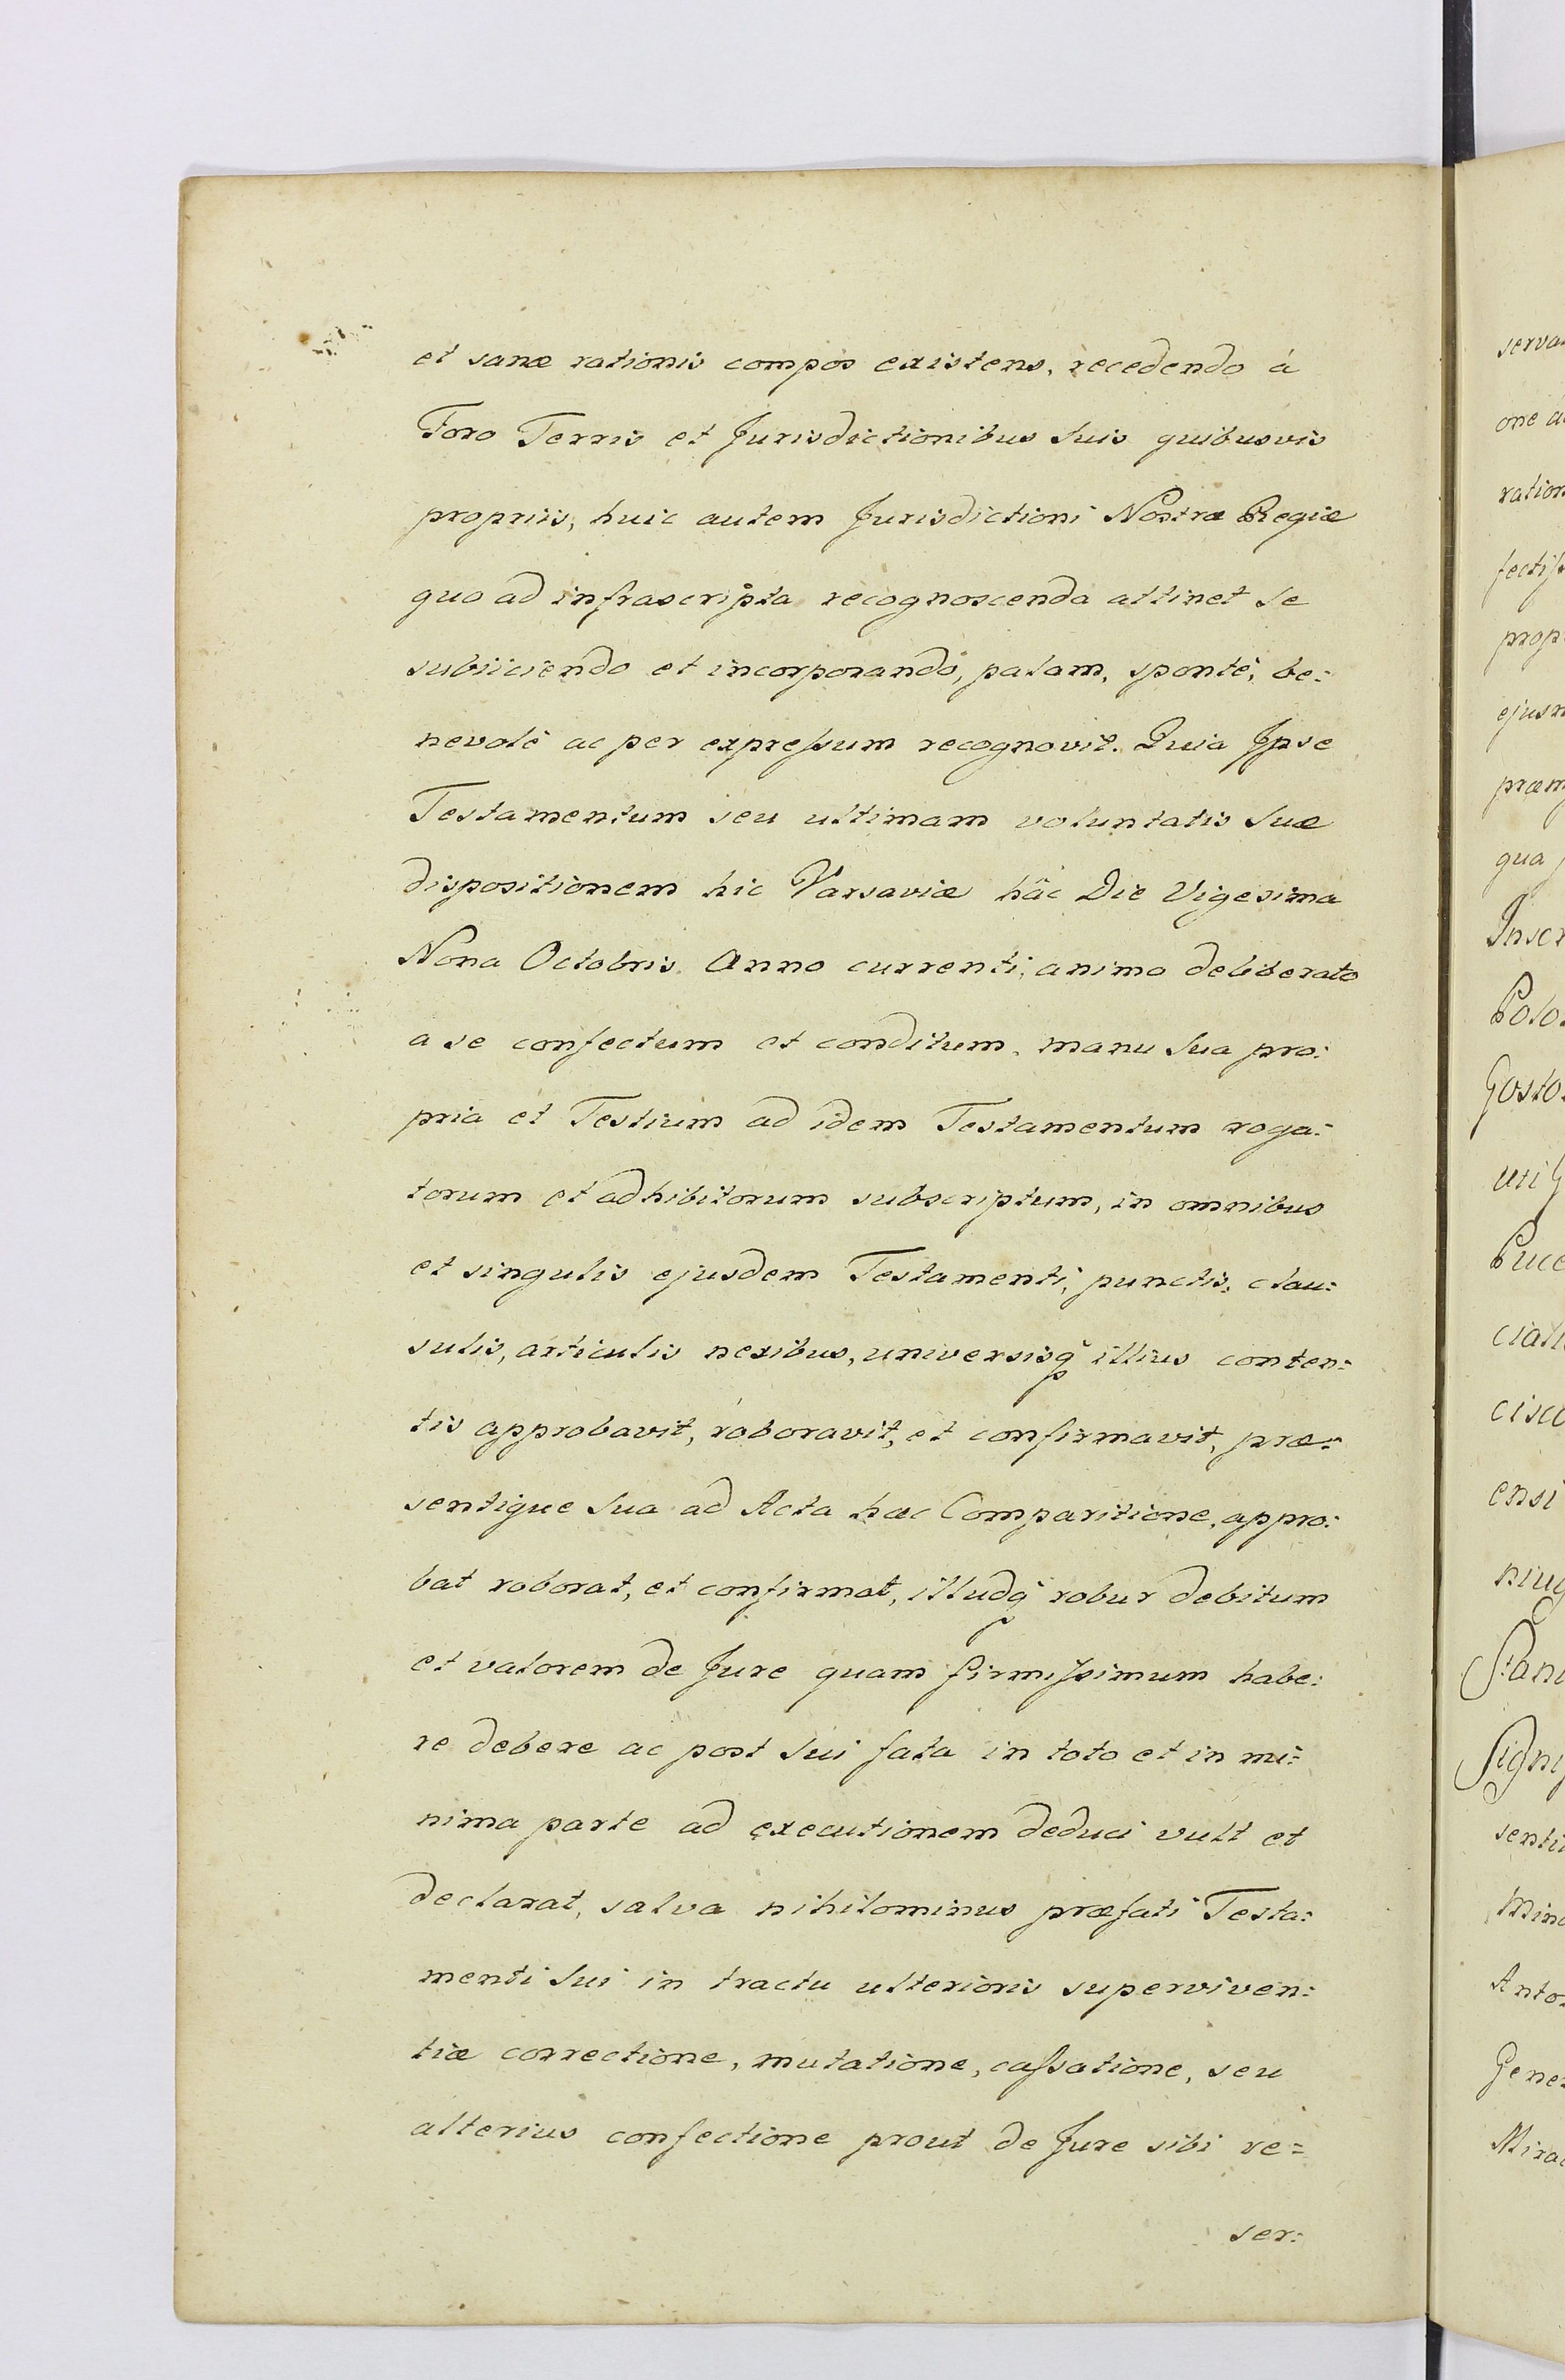 et sanæ rationis compos existens, recedendo à
Foro Terris et Jurisdictionibus Suis quibusvis
propriis, huic autem Jurisdictioni Nostræ Regiæ
quo ad infrascripta recognoscenda attinet Se
subiiciendo et incorporando, palam, sponte, be:
nevolè ac per expreſsum recognovit. Quia Ipse
Testamentum seu ultimam voluntatis Suæ
dispositionem hic Varsaviæ hâc Die Vigesima
Nona Octobris Anno currenti, animo deliberato
a se confectum et conditum, manu Sua pro:
pria et Testium ad idem Testamentum roga:
torum et adhibitorum subscriptum, in omnibus
et singulis ejusdem Testamenti, punctis, clau:
sulis, articulis nexibus, universisq̃ illius conten:
tis approbavit, roboravit, et confirmavit, præ:
sentique Sua ad Acta hæc Comparitione, appro:
bat roborat, et confirmat, illudq̃ robur debitum
et valorem de Jure quam firmiſsimum habe:
re debere ac post Sui fata in toto et in mi:
nima parte ad executionem deduci vult et
declarat, salva nihilominus præfati Testa:
menti Sui in tractu ulterioris superviven:
tiæ correctione, mutatione, caſsatione, seu
alterius confectione prout de Jure sibi re=
ser:
serva
one a
ration
prop
ejusm
præm
qua
Inscr
Polo
Gosto
uti G
Puce
ciali
cisco
ensi
niug
Stani
Signi
senti
Mino
Anto
Gene
Mirac